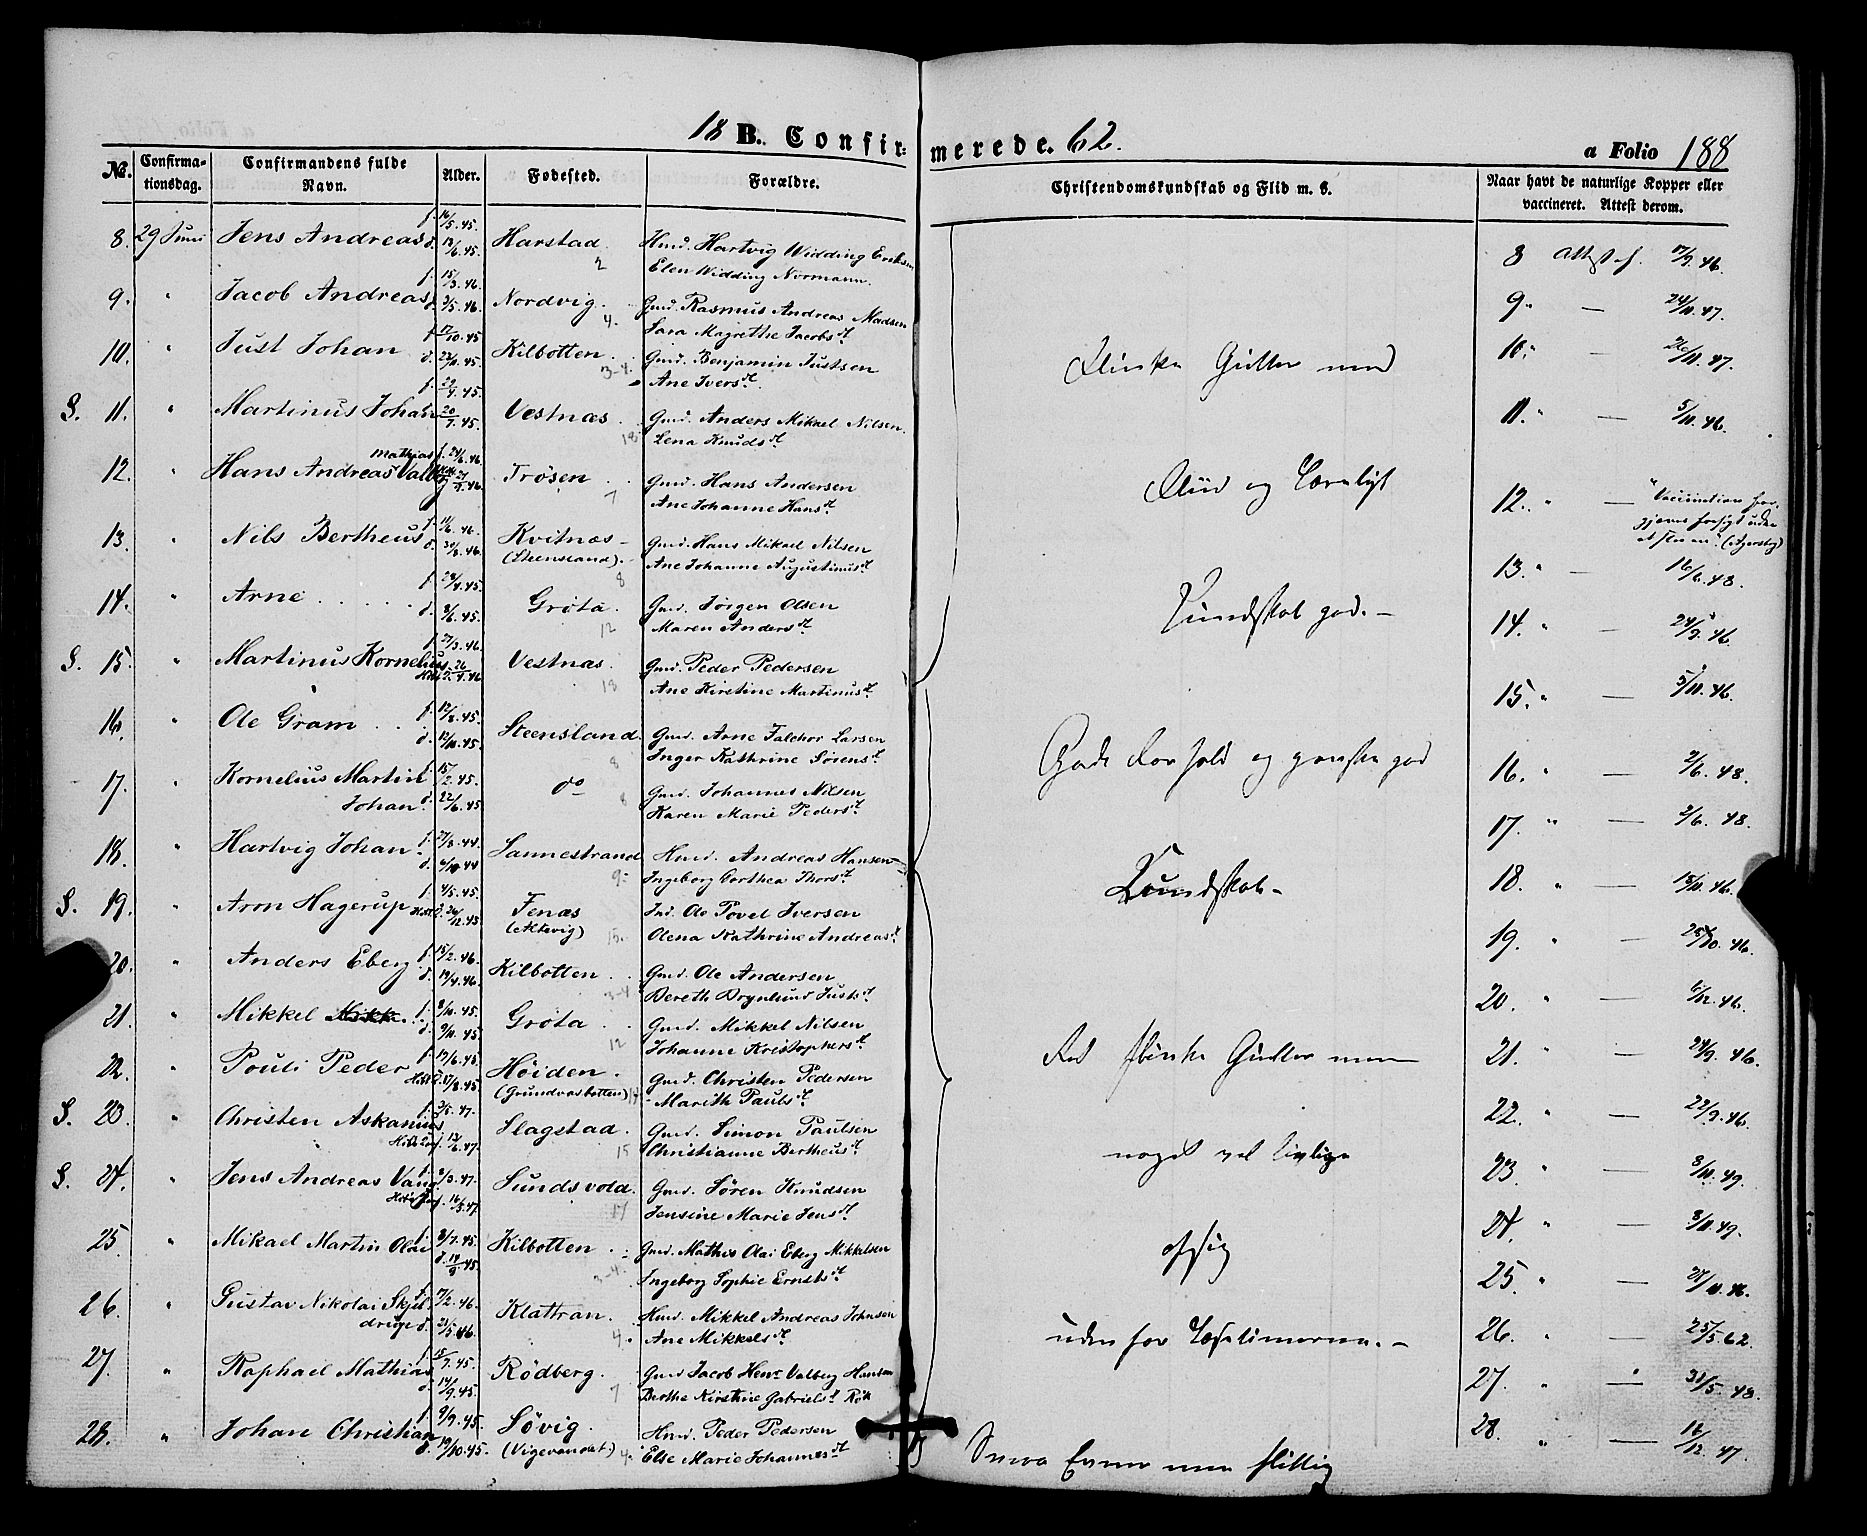 18 B. Confirmerede. 62.
a Folio 188
No. Confirmationsdag. Confirmandens fulde Navn. Alder. Fødested. Forældre. Christendomskundskab og Flid m. S. Naar havt de naturlige Kopper eller vaccineret. Attest derom.
8. 29 Juni Jens Andreas f. 16/5.45. d. /6.45. Harstad. 2 Hmd. Hartvig Widding Eriksen
Elen Widding Normann. 8 Attest af. 17/9.46.
9. " Jacob Andreas f. 15/3.46. d. 3/5.46. Nordvig. 4. Gmd. Rasmus Andreas Madsen
Sara Magrethe Jacobsdt. 9. " — 24/11.47.
10. " Just Johan f. 17/10.45 d. 23/11.45. Kilbotten. 3-4. Gmd. Benjamin Justsen
Ane Iversdt. 10. " — 26/11.47.
S. 11. " Martinus Johan f. 29/4.45. 20/7.45. Vestnæs. 18. Gmd. Anders Mikael Nilsen.
Lena Knudsdt. 11. " — 5/11.46.
12. " Hans Andreas Mathias Valb f. 24/6.46. 27/9.46. Trøsen. 7 Gmd. Hans Andersen
Ane Johanne Hansdt. 12. " — "Vaccination for-
gjæves forsøgt uden
13. " Nils Bertheus f. 11/6.46. d. 30/8.46. Kvitnæs -
(Steensland). 8 Gmd. Hans Mikael Nilsen
Ane Johanne Augustinusdt. 13. " — 16/6.48.
14. " Arne . . . . f. 28/4.45. d. 8/6.45. Grøta. 12 Gmd. Jørgen Olsen
Maren Andersdt. 14. " — 24/9.46.
S. 15. " Martinus Kornelius f. 27/3.46. 26/4.46 Vestnæs. 18 Gmd. Peder Pedersen
Ane Kirstine Martinusdt. 15. " — 5/11.46.
16. " Ole Gram . . f. 12/8.45. d. 12/10.45. Steensland. 8 Gmd. Arne Falchor Larsen
Inger Kathrine Sørensdt. 16. " — 2/6.48.
17. " Kornelius Martin
Johan. f. 15/2.45. d. 22/6.45 do 8 Gmd. Johannes Nilsen
Karen Marie Pedersdt. 17. " — 2/6.48.
18. " Hartvig Johan. f. 27/8.44. d. 6/10.44 Sannestrand 9. Hmd. Andreas Hansen
Ingeborg Dorthea Thorsdt. 18. " — 18/11.46.
S. 19. " Aron Hagerup f. 4/5.45. 26/12.45 Fenæs
(Altevig) 15. Ind. Ole Povel Iversen
Olena Kathrine Andreasdt. 19. " — 25/10.46.
20. " Anders Eberg. f. 15/2.46. d. 19/4.46. Kilbotten. 3-4 Gmd. Ole Andersen
Bereth Brynlund Justsdt. 20. " — 6/12.46.
21. " Mikkel f. 8/10.45. d. 9/11.45. Grøta. 12 Gmd. Mikkel Nilsen
Johanne Kristophersdt. 21. " — 24/9.46.
22. " Pouli Peder f. 19/6.45. 17/8.45. Høiden.
(Grundvasbotten) Gmd. Christen Pedersen
Marith Paulsdt. 22. " — 22/9.46.
S. 23. " Christen Askanius f. 3/5.47. 13/6.47. Slagstad. 15 Gmd. Simon Paulsen
Christianne Bertheusdt. 23. " — 8/11.49.
S. 24. " Jens Andreas Vang f. 2/3.47. 16/5.47 Sundsvold. 17 Gmd. Søren Knudsen
Jensine Marie Jensdt. 24. " — 8/11.49.
25. " Mikael Martin Olai f. 8/7.45. d. 14/9.45. Kilbotten. 3-4. Gmd. Mathis Olai Eberg Mikkelsen
Ingeborg Sophie Ernstsdt. 25. " — 27/11.46.
26. " Gustav Nikolai Skjel-
drige f. 17/2.46. d. 21/5.46. Klattran. 4. Hmd. Mikkel Andreas Johnsen
Ane Mikkelsdt. 26. " — 25/5.62.
27. " Raphael Mathias f. 15/7.45. d. 14/9.45. Rødberg. 7 Gmd Jacob Henr Valberg Hansen
Berthe Kirstine Gabrielsdt Røk 27. " " 31/5.48.
28. " Johan Christian f. 9/9.45. d. 19/10.45. Søvig.
(Vigevandet) 4. Hmd. Peder Pedersen
Else Marie Johannesdt. 28. " — 16/12.47.
Flinke Gutter med
Flid og
Kundskab god. -
Gode Forhold og ganske god
Kundskab -
flinke Gutter men
noget vel livlige
udenfor Læsetimerne. -
Svage Evner men flittig